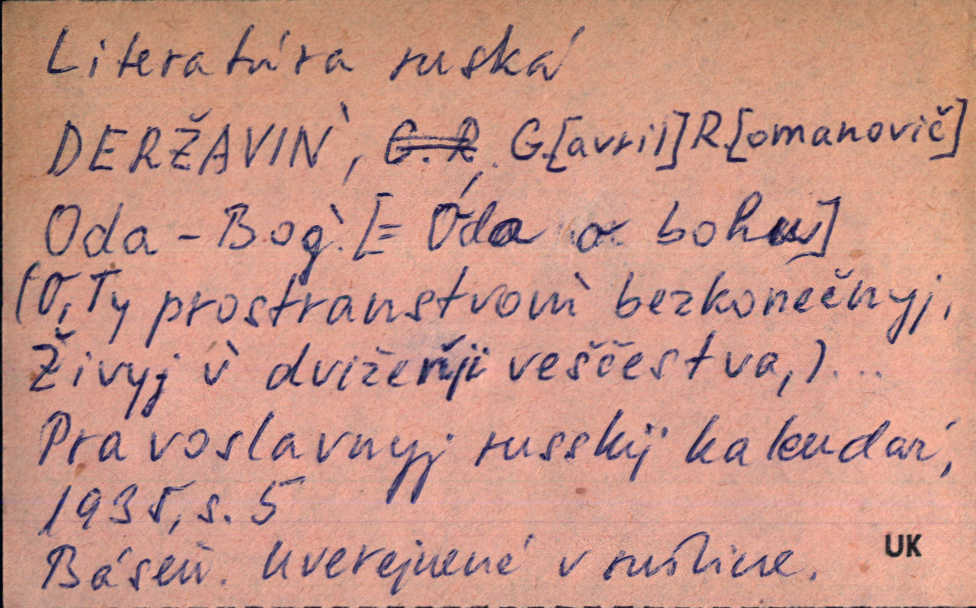 Literatúra ruská
DERŽAVIN', G. R. G[avril] R[omanovič]
Oda - Bog'. [= Óda o bohu]
(O, Ty prostranstvom' bezkonečnyj,
Živyj v' dviženji veščestva,) ...
Pravoslavnyj russkij kalendar',
1935, s. 5
Báseň. Uverejnené v ruštine.
UK